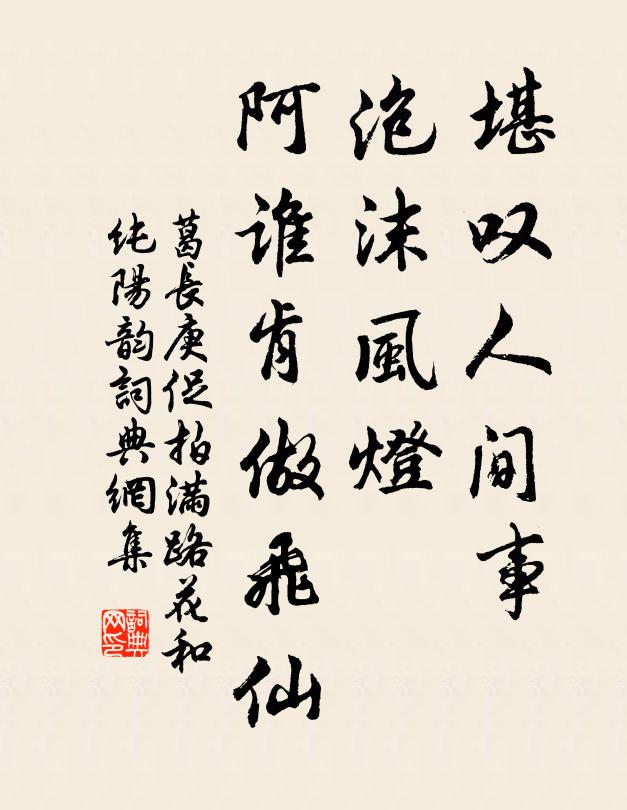 堪叹人间事
泡沫風燈
阿谁肯做飛仙
葛長庚促拍满路花和
纯陽韵詞典網集
詞典
网印